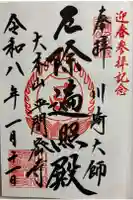 迎春参拝記念
奉拝 川崎大師
厄除遍照殿
大本山平間寺
令和八年一月十一日